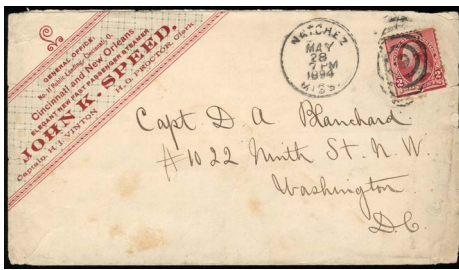 GENERAL OFFICE:
No. 11 Public Landing, Cincinnati, O.
Cincinnati and New Orleans
ELEGANT NEW FAST PASSENGER STEAMER
JOHN K. SPEED.
Captain. H. J. VINTON H. O. PROCTOR, Clerk.
NATCHEZ
MAY
28
7 PM
1894
MISS.
2 2
Capt D A Blanchard
#1022 Ninth St. N. W.
Washington
D.C.